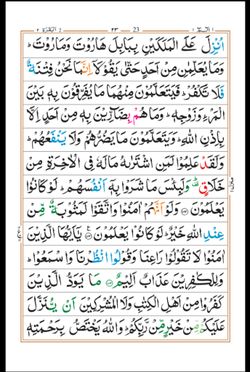 الٓمّٓ ١ ٢٣ 23 البقرة ٢
اُنْزِلَ عَلَى الْمَلَكَيْنِ بِبَابِلَ هَارُوْتَ وَمَارُوْتَ ؕ
وَمَا يُعَلِّمٰنِ مِنْ اَحَدٍ حَتّٰى يَقُوْلَاۤ اِنَّمَا نَحْنُ فِتْنَةٌ
فَلَا تَكْفُرْ ؕ فَيَتَعَلَّمُوْنَ مِنْهُمَا مَا يُفَرِّقُوْنَ بِهٖ بَيْنَ
الْمَرْءِ وَزَوْجِهٖ ؕ وَمَا هُمْ بِضَآرِّيْنَ بِهٖ مِنْ اَحَدٍ اِلَّا
بِاِذْنِ اللّٰهِ ؕ وَيَتَعَلَّمُوْنَ مَا يَضُرُّهُمْ وَلَا يَنْفَعُهُمْ ؕ
وَلَقَدْ عَلِمُوْا لَمَنِ اشْتَرٰىهُ مَا لَهٗ فِى الْاٰخِرَةِ مِنْ
خَلَاقٍ ؕ وَلَبِئْسَ مَا شَرَوْا بِهٖۤ اَنْفُسَهُمْ ؕ لَوْ كَانُوْا
يَعْلَمُوْنَ ۝ وَلَوْ اَنَّهُمْ اٰمَنُوْا وَاتَّقَوْا لَمَثُوْبَةٌ مِّنْ
عِنْدِ اللّٰهِ خَيْرٌ ؕ لَوْ كَانُوْا يَعْلَمُوْنَ ۝ يٰٓاَيُّهَا الَّذِيْنَ
اٰمَنُوْا لَا تَقُوْلُوْا رَاعِنَا وَقُوْلُوا انْظُرْنَا وَاسْمَعُوْا ؕ
وَلِلْكٰفِرِيْنَ عَذَابٌ اَلِيْمٌ ۝ مَا يَوَدُّ الَّذِيْنَ
كَفَرُوْا مِنْ اَهْلِ الْكِتٰبِ وَلَا الْمُشْرِكِيْنَ اَنْ يُّنَزَّلَ
عَلَيْكُمْ مِّنْ خَيْرٍ مِّنْ رَّبِّكُمْ ؕ وَاللّٰهُ يَخْتَصُّ بِرَحْمَتِهٖ